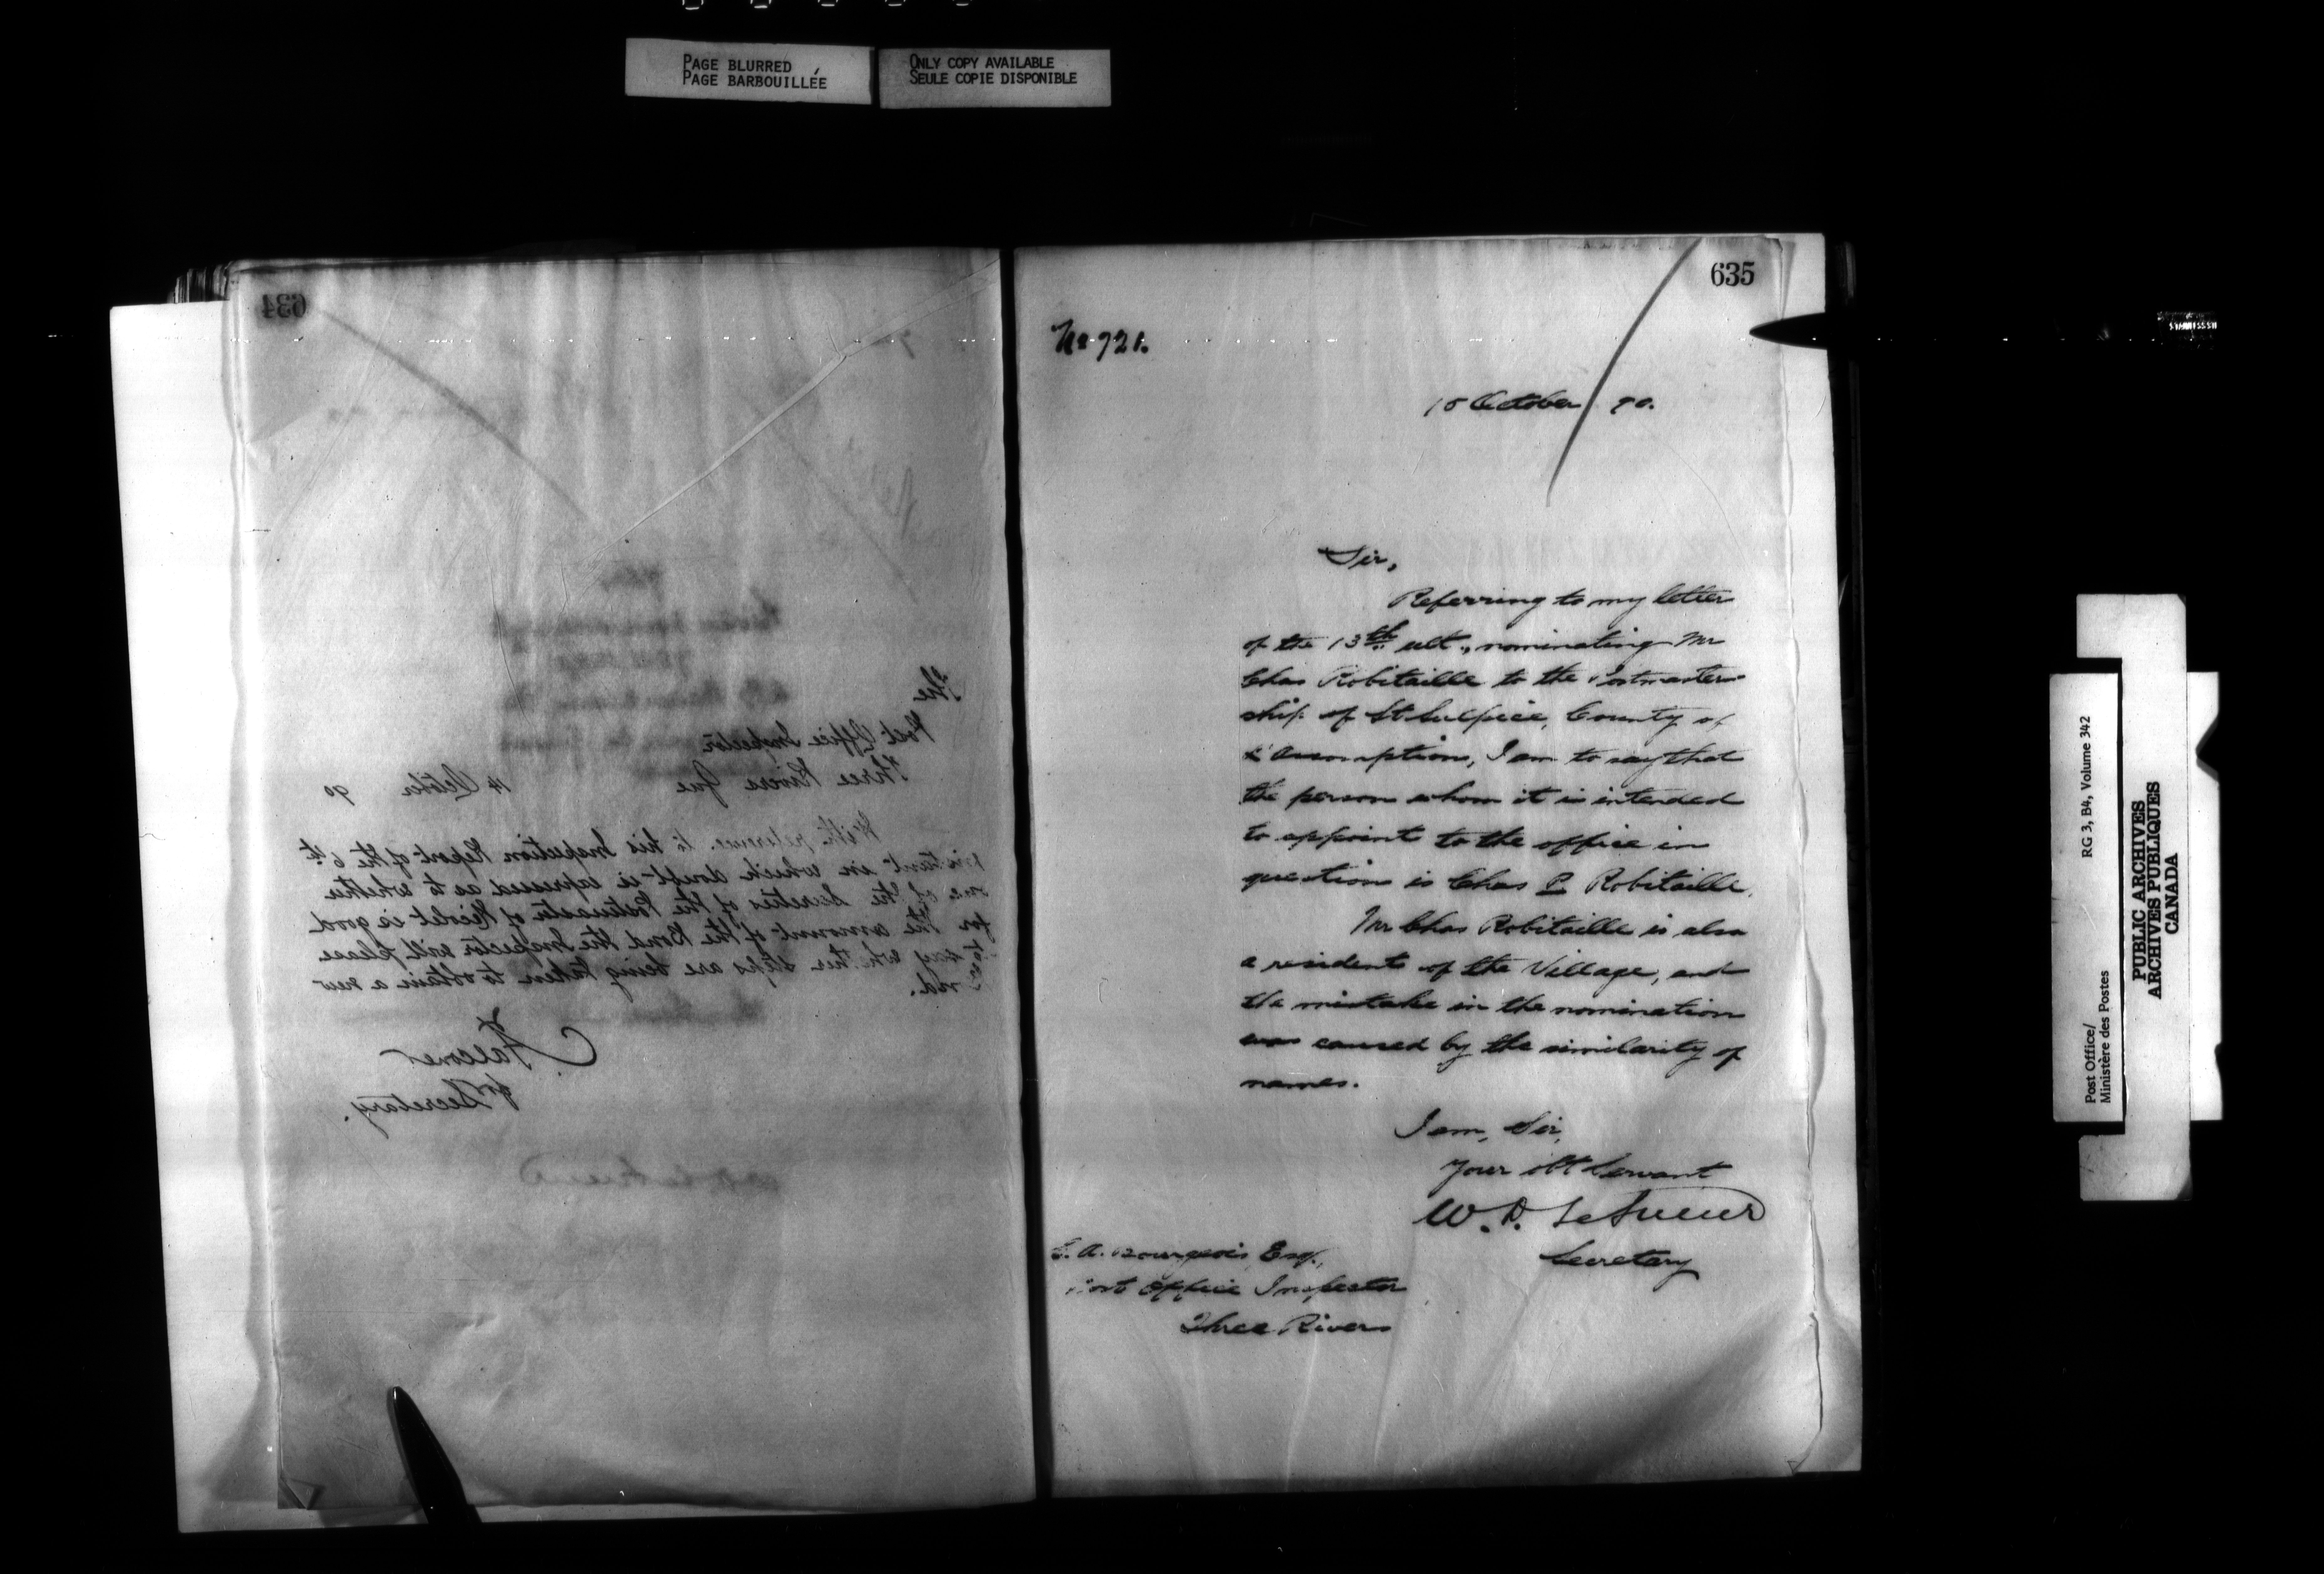 PAGE BLURRED
PAGE BARBOUILLÉE
ONLY COPY AVAILABLE
SEULE COPIE DISPONIBLE
634
The
Post Office Inspector
Three Rivers Que
14 October 90
With reference to his Inspection Report of the 6th
instant in which doubt is expressed as to whether
one of the Sureties of the Postmaster of Nicolet is good
for the amount of the Bond the Inspector will please
to say whether steps are being taken to obtain a new
nd.
C. Falconer
for Secretary.
635
No 721.
15 October 90.
Sir,
Referring to my letter
of the 13th ult., nominating Mr
Chas Robitaille to the Postmaster
ship of St Sulpice, County of
L'Assomption, I am to say that
the person whom it is intended
to appoint to the office in
question is Chas P. Robitaille.
Mr Chas Robitaille is also
a resident of the Village, and
the mistake in the nomination
was caused by the similarity of
names.
I am, Sir,
Your obt Servant
W. D. LeSueur
Secretary
C. A. Bourgeois, Esq.,
Post Office Inspector
Three Rivers
Post Office/
Ministère des Postes
RG 3, B4, Volume 342
PUBLIC ARCHIVES
ARCHIVES PUBLIQUES
CANADA